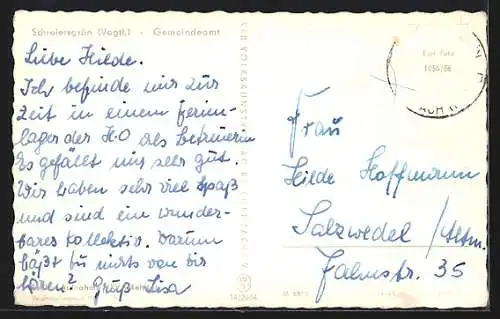 Schreiersgrün (Vogtl.) - Gemeindeamt
Liebe Hilde.
Ich befinde mir zur
Zeit in einem Ferien-
lager der HO als Betreuerin
Es gefällt mir sehr gut.
Wir haben sehr viel Spaß
und sind ein wunder-
bares Kollektiv. Warum
läßt du nichts von dir
hören? Gruß Lisa
Frau
Hilde Hoffmann
Salzwedel / Altm.
Falmstr. 35